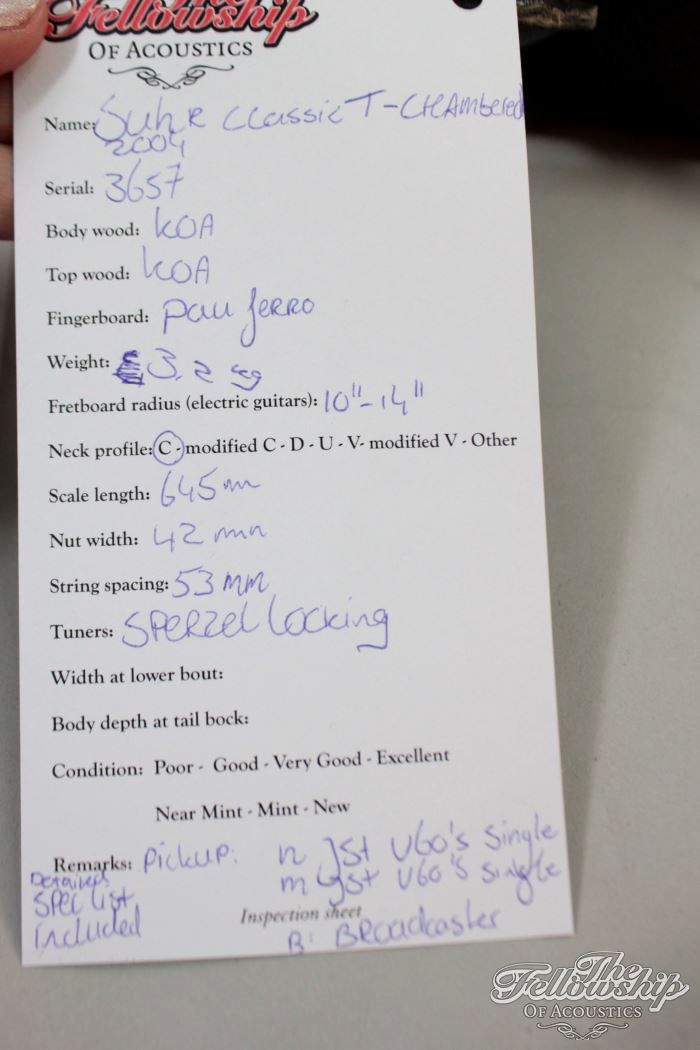 The
Fellowship
OF ACOUSTICS
Name: Suhr Classic T-Chambered
2004
Serial: 3657
Body wood: KOA
Top wood: KOA
Fingerboard: pau ferro
Weight: 3.2 kg
Fretboard radius (electric guitars): 10"-14"
Neck profile: C - modified C - D - U - V- modified V - Other
Scale length: 645mm
Nut width: 42 mm
String spacing: 53 mm
Tuners: Sperzel Locking
Width at lower bout:
Body depth at tail bock:
Condition: Poor - Good - Very Good - Excellent
Near Mint - Mint - New
Remarks: Pickup: n JST V60's Single
m JST V60's single
Detailed
Spec list
included
Inspection sheet
B: Broadcaster
The
Fellowship
OF ACOUSTICS